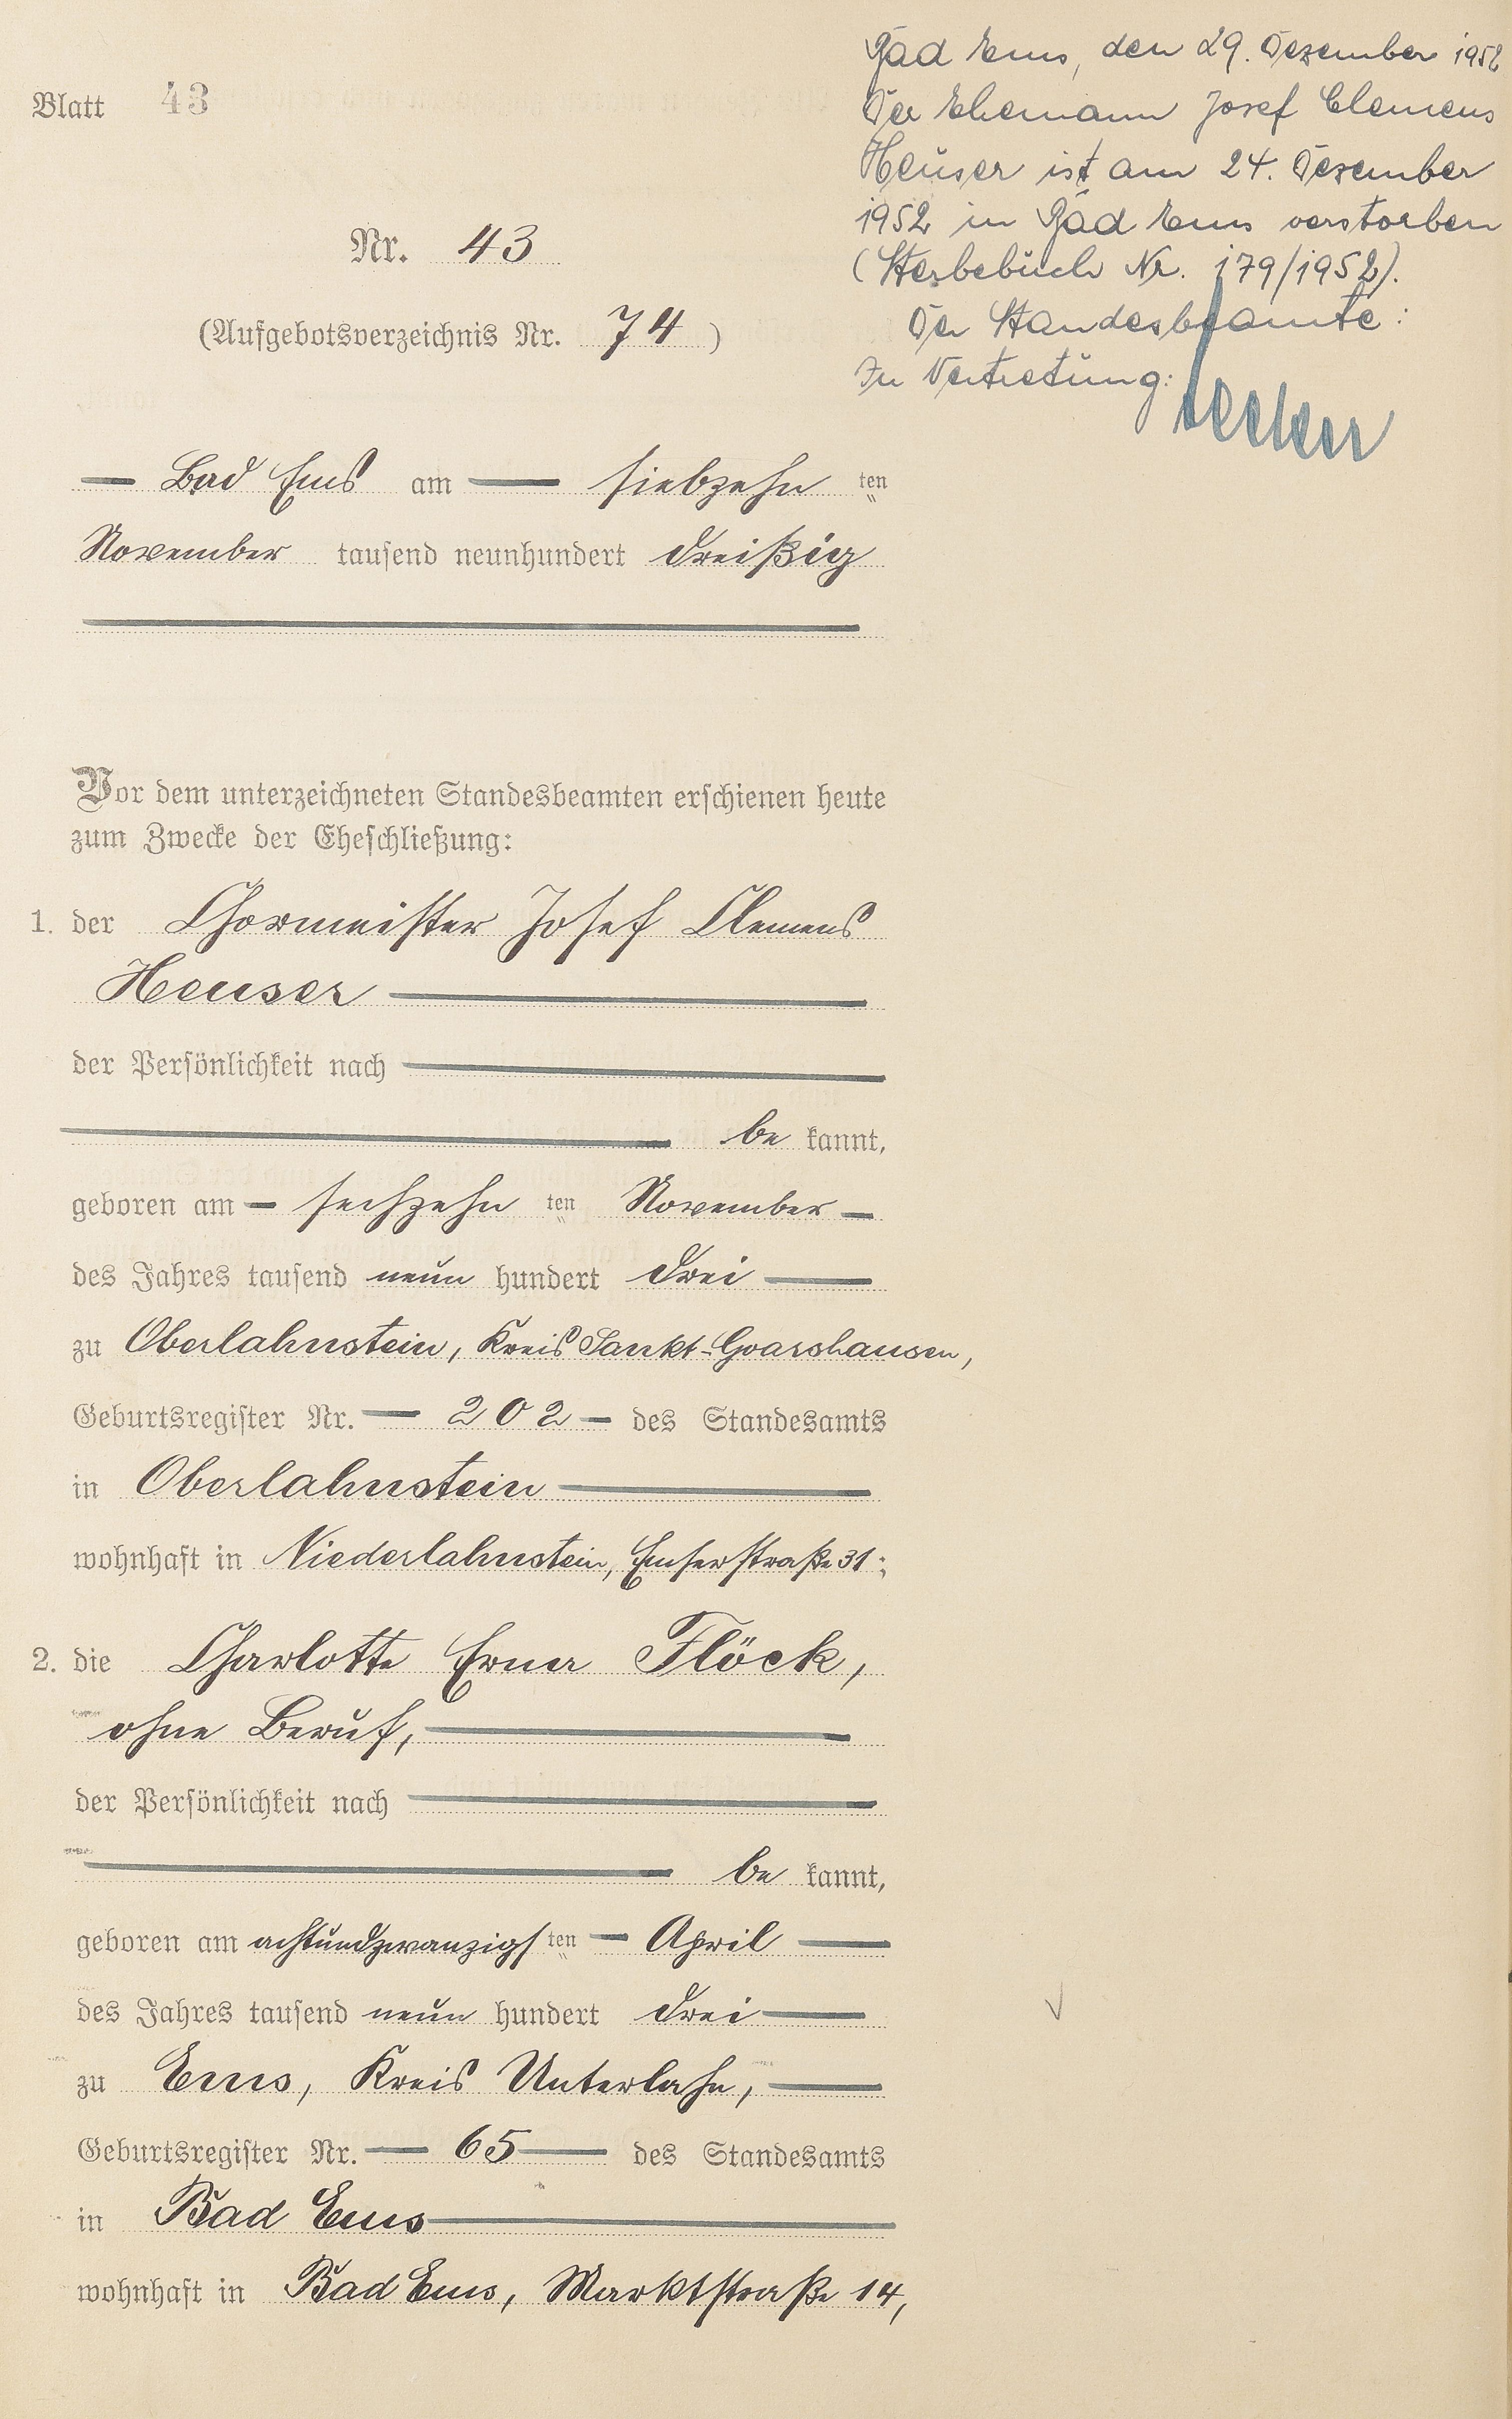 Blatt 43
Bad Ems, den 29. Dezember 1952
Der Ehemann Josef Clemens
Heuser ist am 24. Dezember
1952 in Bad Ems verstorben
(Sterbebuch Nr. 179/1952).
Der Standesbeamte:
In Vertretung:
Nr. 43
(Aufgebotsverzeichnis Nr. 74)
Bad Ems am siebzehn ten
November tausend neunhundert dreißig
Vor dem unterzeichneten Standesbeamten erschienen heute
zum Zwecke der Eheschließung:
1. der Chormeister Josef Clemens
Heuser
der Persönlichkeit nach
be kannt,
geboren am sechzehn ten November
des Jahres tausend neun hundert drei
zu Oberlahnstein, Kreis Sankt-Goarshausen,
Geburtsregister Nr. 202 des Standesamts
in Oberlahnstein
wohnhaft in Niederlahnstein, Emserstraße 31;
2. die Charlotte Erna Flöck,
ohne Beruf,
der Persönlichkeit nach
be kannt,
geboren am achtundzwanzigs ten April
des Jahres tausend neun hundert drei
zu Ems, Kreis Unterlahn,
Geburtsregister Nr. 65 des Standesamts
in Bad Ems
wohnhaft in Bad Ems, Marktstraße 14,